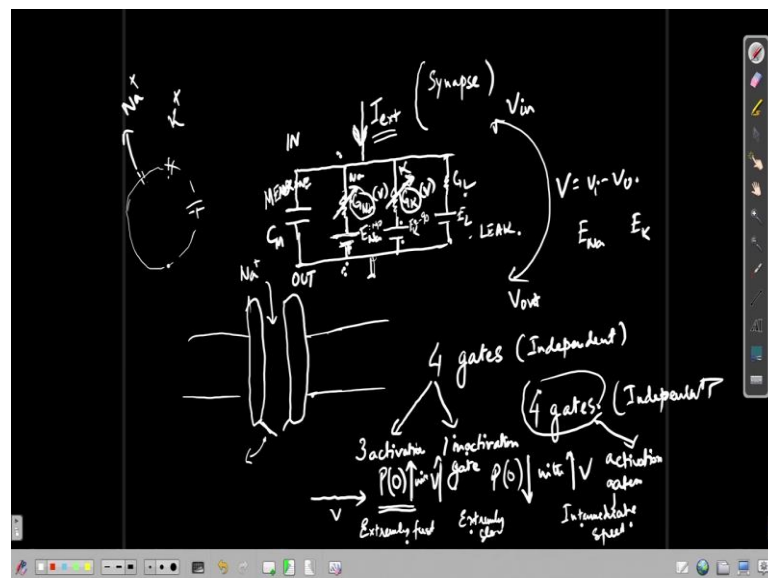 Na
K
I ext
(Synapse)
Vin
IN
MEMBRANE
Na
K
G Na (V)
G K (V)
G L
V = Vi - Vo.
C M
E Na
E K
E L
LEAK.
E Na E K
OUT
Na+
Vout
4 gates (Independent)
4 gates. (Independent
3 activation 1 inactivation gate
P(O) ↑ with V↑
P(O) ↓ with ↑ V
activation gates
V
Extremely fast
Extremely slow
Intermediate speed.